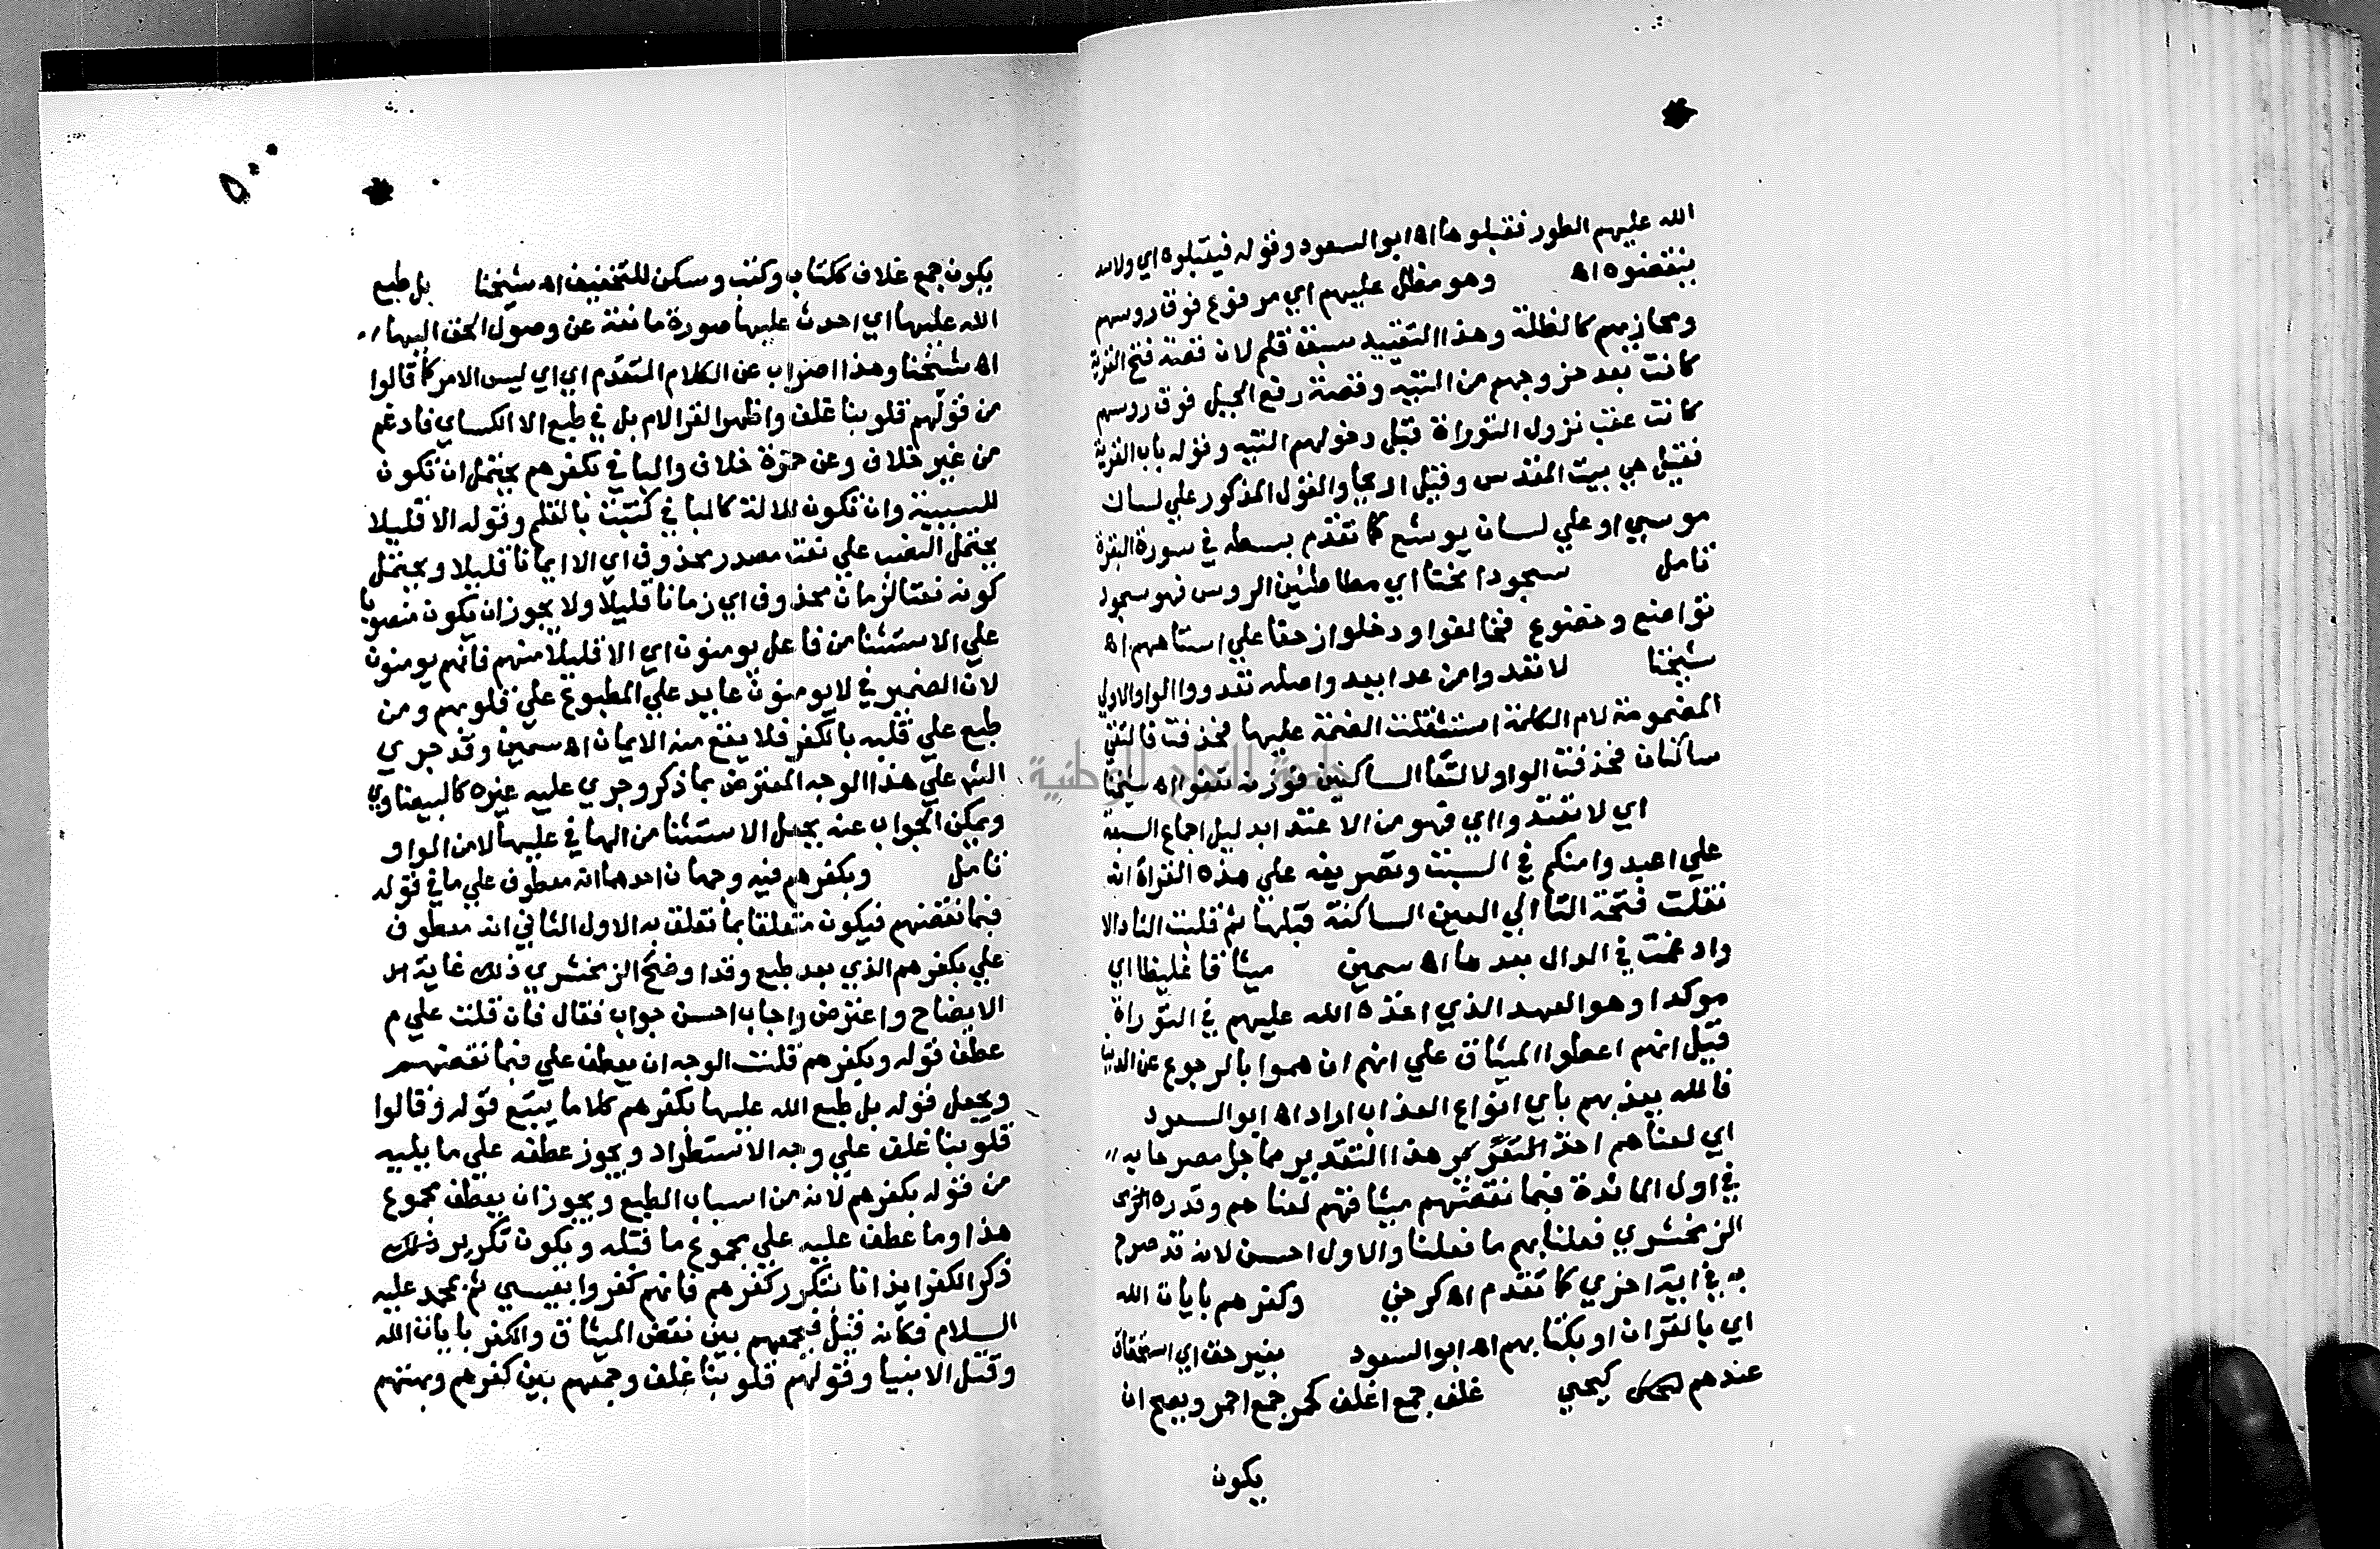 الله عليهم الطور فقبلوها اه ابو السعود وقوله فيقبلوه اي ولا
ينقضوه اه وهو مظل عليهم اي مرفوع فوق روسهم
ومحازيهم كالظلة وهذا التقييد سبقة قلم لان قصة فتح القرية
كانت بعد خروجهم من التيه وقصة رفع الجبل فوق روسهم
كانت عقب نزول التوراة قبل دخولهم التيه وقوله باب القرية
فقيل هي بيت المقدس وقيل اريحا والقول المذكور علي لسان
موسي او علي لسان يوشع كما تقدم بسطه في سورة البقرة
تامل سجود انحنا اي مطاطئين الروس فهو سجود
تواضع وخضوع فخالفوا ودخلوا زحفا علي استاههم اه
شيخنا لا تعدوا من عدا يعدو واصله تعدووا الواو الاولي
المضمومة لام الكلمة استثقلت الضمة عليها فحذفت فالتقي
ساكنان فحذفت الواو لالتقا الساكنين فوزنه تفعوا اه شيخنا
اي لا تعتدوا اي فهو من الاعتدا بدليل اجماع السبعة
علي اعتدوا منكم في السبت وتصريفه علي هذه القراة انه
نقلت فتحة التا الي العين الساكنة قبلها ثم قلبت التا دالا
وادغمت في الدال بعدها اه سمين ميثاقا غليظا اي
موكدا وهو العهد الذي اخذه الله عليهم في التوراة
قيل انهم اعطوا الميثاق علي انهم ان هموا بالرجوع عن الدين
فالله يعذبهم باي انواع العذاب اراد اه ابو السعود
اي لعناهم اخذ المقرر هذا التقدير مما جا مصرحا به
في اول المائدة فبما نقضهم ميثاقهم لعناهم وقدره
الزمخشري فعلنا بهم ما فعلنا والاول احسن لانه قد صرح
به في اية اخري كما تقدم اه كرخي وكفرهم بايات الله
اي بالقران او بكتابهم اه ابو السعود بغير حق اي استحقاق
عندهم كيحيي غلف جمع اغلف كحمر جمع احمر ويصح ان
يكون
٥٠٠
يكون جمع غلاف ككتاب وكتب وسكن للتخفيف اه شيخنا بل طبع
الله عليها اي احدث عليها صورة مانعة عن وصول الحق اليها
اه شيخنا وهذا اضراب عن الكلام المتقدم اي اي ليس الامر كما قالوا
من قولهم قلوبنا غلف واظهر القرا لام بل في طبع الا الكساي فادغم
من غير خلاف وعن حمزة خلاف والبا في بكفرهم يحتمل ان تكون
للسببية وان تكون للالة كالبا في كتبت بالقلم وقوله الا قليلا
يحتمل النصب علي نعت مصدر محذوف اي الا ايمانا قليلا ويحتمل
كونه نعتا لزمان محذوف اي زمانا قليلا ولا يجوز ان يكون منصوبا
علي الاستثنا من فاعل يومنون اي الا قليلا منهم فانهم يومنون
لان الضمير في لا يومنون عايد علي المطبوع علي قلوبهم ومن
طبع علي قلبه بالكفر فلا يقع منه الايمان اه سمين وقد جري
الشم علي هذا الوجه المعترض بما ذكر وجري عليه غيره كالبيضاوي
ويمكن الجواب عنه بجعل الاستثنا من الها في عليها لا من الواو
تامل وبكفرهم فيه وجهان احدهما انه معطوف علي ما في قوله
فبما نقضهم فيكون متعلقا بما تعلق به الاول الثاني انه معطوف
علي بكفرهم الذي بعد طبع وقد اوضح الزمخشري ذلك غاية
الايضاح واعترض واجاب احسن جواب فقال فان قلت علي م
عطف قوله وبكفرهم قلت الوجه ان يعطف علي فبما نقضهم
ويجعل قوله بل طبع الله عليها بكفرهم كلاما يتبع قوله وقالوا
قلوبنا غلف علي وجه الاستطراد ويجوز عطفه علي ما يليه
من قوله بكفرهم لانه من اسباب الطبع ويجوز ان يعطف مجموع
هذا وما عطف عليه علي مجموع ما قبله ويكون تكرير
ذكر الكفر ايذانا بتكرر كفرهم فانهم كفروا بعيسي ثم بمحمد عليه
السلام فكانه قيل فبجمعهم بين نقض الميثاق والكفر بايات الله
وقتل الانبيا وقولهم قلوبنا غلف وجمعهم بين كفرهم وبهتهم
جامعة النجاح الوطنية